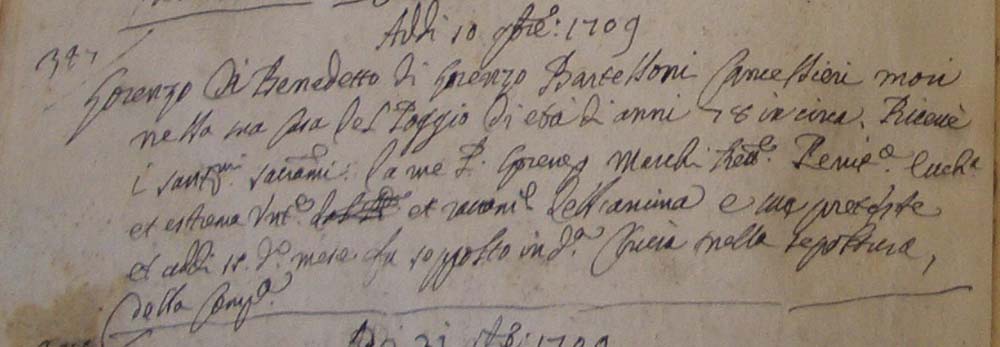 Addi 10 9bre: 1709
387
Lorenzo di Benedetto di Lorenzo Bartelloni Cancellieri morì
nella sua Casa del Poggio di età di anni 78 in circa. Riceve
i sant.mi sacram.ti da me P. Lorenzo Marchi Rett.e Penit.a Euch.a
et estrema Unt.e et racom.e dell'anima e
et addi 11 d.o mese fu seppolto in d.a Chiesa nella sepoltura,
della Comp.a
Addi 21 9bre: 1709